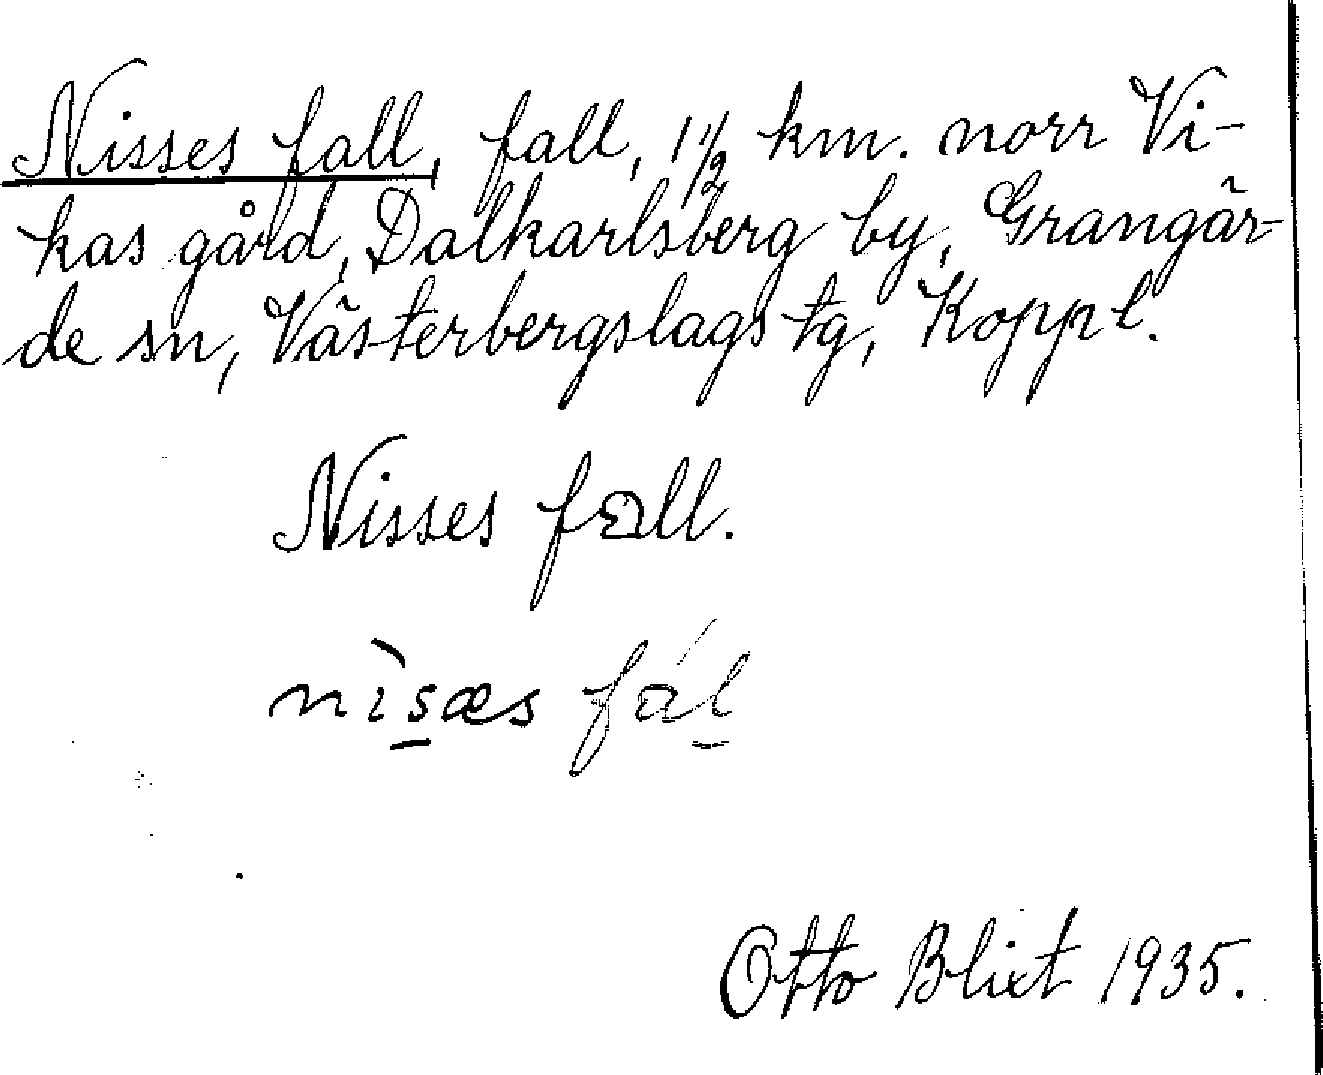 Nisses fall, fall, 1 1/2 km. norr Vi-
kas gård, Dalkarlsberg by, Grangär-
de sn, Västerbergslags tg, Koppl.
Nisses fall.
nìs̠æs fál̠
Otto Blixt 1935.